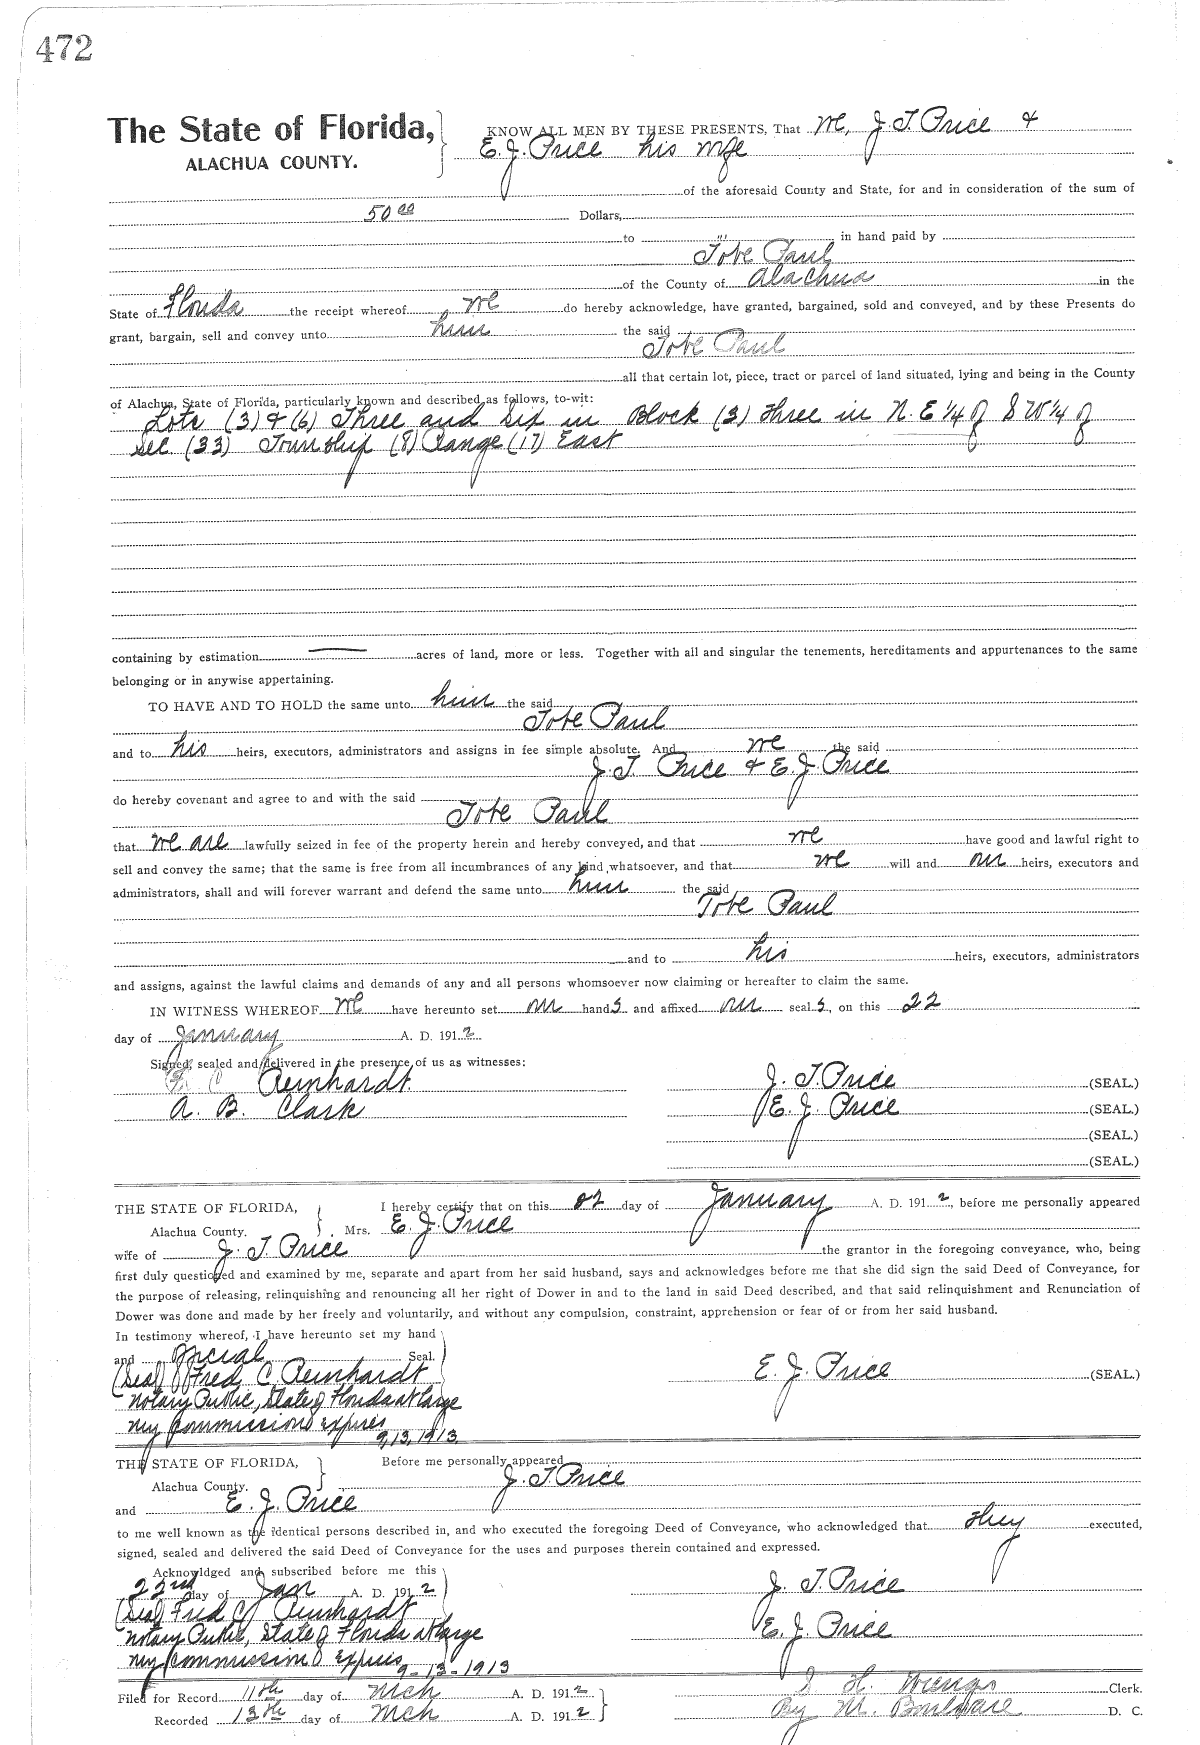 472
The State of Florida, KNOW ALL MEN BY THESE PRESENTS, That We, J. T. Price &
ALACHUA COUNTY. E. J. Price his wife
of the aforesaid County and State, for and in consideration of the sum of
50 00 Dollars,
to in hand paid by
Tobe Paul
of the County of Alachua in the
State of Florida the receipt whereof we do hereby acknowledge, have granted, bargained, sold and conveyed, and by these Presents do
grant, bargain, sell and convey unto him the said
Tobe Paul
all that certain lot, piece, tract or parcel of land situated, lying and being in the County
of Alachua, State of Florida, particularly known and described as follows, to-wit:
Lots (3) & (6) Three and Six in Block (3) three in N. E 1/4 of S W 1/4 of
Sec. (33) Township (8) Range (17) East
containing by estimation — acres of land, more or less. Together with all and singular the tenements, hereditaments and appurtenances to the same
belonging or in anywise appertaining.
TO HAVE AND TO HOLD the same unto him the said
Tobe Paul
and to his heirs, executors, administrators and assigns in fee simple absolute. And we the said
J. T. Price & E. J. Price
do hereby covenant and agree to and with the said
Tobe Paul
that we are lawfully seized in fee of the property herein and hereby conveyed, and that we have good and lawful right to
sell and convey the same; that the same is free from all incumbrances of any kind whatsoever, and that we will and our heirs, executors and
administrators, shall and will forever warrant and defend the same unto him the said
Tobe Paul
and to his heirs, executors, administrators
and assigns, against the lawful claims and demands of any and all persons whomsoever now claiming or hereafter to claim the same.
IN WITNESS WHEREOF We have hereunto set our hands and affixed our seals, on this 22
day of January A. D. 1912
Signed, sealed and delivered in the presence of us as witnesses:
F. C. Reinhardt J. T. Price (SEAL.)
A. B. Clark E. J. Price (SEAL.)
(SEAL.)
(SEAL.)
THE STATE OF FLORIDA, I hereby certify that on this 22 day of January A. D. 1912, before me personally appeared
Alachua County. Mrs. E. J. Price
wife of J. T. Price the grantor in the foregoing conveyance, who, being
first duly questioned and examined by me, separate and apart from her said husband, says and acknowledges before me that she did sign the said Deed of Conveyance, for
the purpose of releasing, relinquishing and renouncing all her right of Dower in and to the land in said Deed described, and that said relinquishment and Renunciation of
Dower was done and made by her freely and voluntarily, and without any compulsion, constraint, apprehension or fear of or from her said husband.
In testimony whereof, I have hereunto set my hand
and official Seal.
(Seal) Fred C. Reinhardt E. J. Price (SEAL)
Notary Public, State of Florida at large
my commission expires
9, 13, 1913
THE STATE OF FLORIDA, Before me personally appeared
Alachua County. J. T. Price
and E. J. Price
to me well known as the identical persons described in, and who executed the foregoing Deed of Conveyance, who acknowledged that they executed,
signed, sealed and delivered the said Deed of Conveyance for the uses and purposes therein contained and expressed.
Acknowldged and subscribed before me this
22nd day of Jan A. D. 1912 J. T. Price
(Seal) Fred C. Reinhardt
Notary Public, State of Florida at large E. J. Price
my commission expires 9-13-1913
Filed for Record 11th day of Mch A. D. 1912 S. H. Wienges Clerk.
Recorded 13th day of Mch A. D. 1912 By M. Boulware D. C.